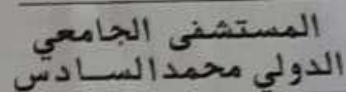 المستشفى الجامعي
الدولي محمد السادس